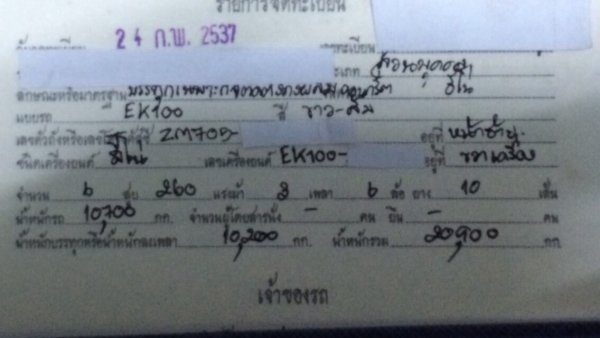 รายการจดทะเบียน
วันจดทะเบียน 24 ก.พ. 2537 เลขทะเบียน
ประเภท ส่วนบุคคล
ลักษณะหรือมาตรฐาน บรรทุกเฉพาะกิจ ฮีโน่
แบบรถ EK100 สี ขาว-ส้ม
เลขตัวถังหรือเลข ZM705- อยู่ที่ หน้าซ้าย
ชนิดเครื่องยนต์ ฮีโน่ เลขเครื่องยนต์ EK100- อยู่ที่ ขวาเครื่อง
จำนวน 6 สูบ 260 แรงม้า 3 เพลา 6 ล้อ ยาง 10 เส้น
น้ำหนักรถ 10,700 กก. จำนวนผู้โดยสารนั่ง - คน ยืน - คน
น้ำหนักบรรทุกหรือน้ำหนักลงเพลา 10,200 กก. น้ำหนักรวม 20,900 กก.
เจ้าของรถ